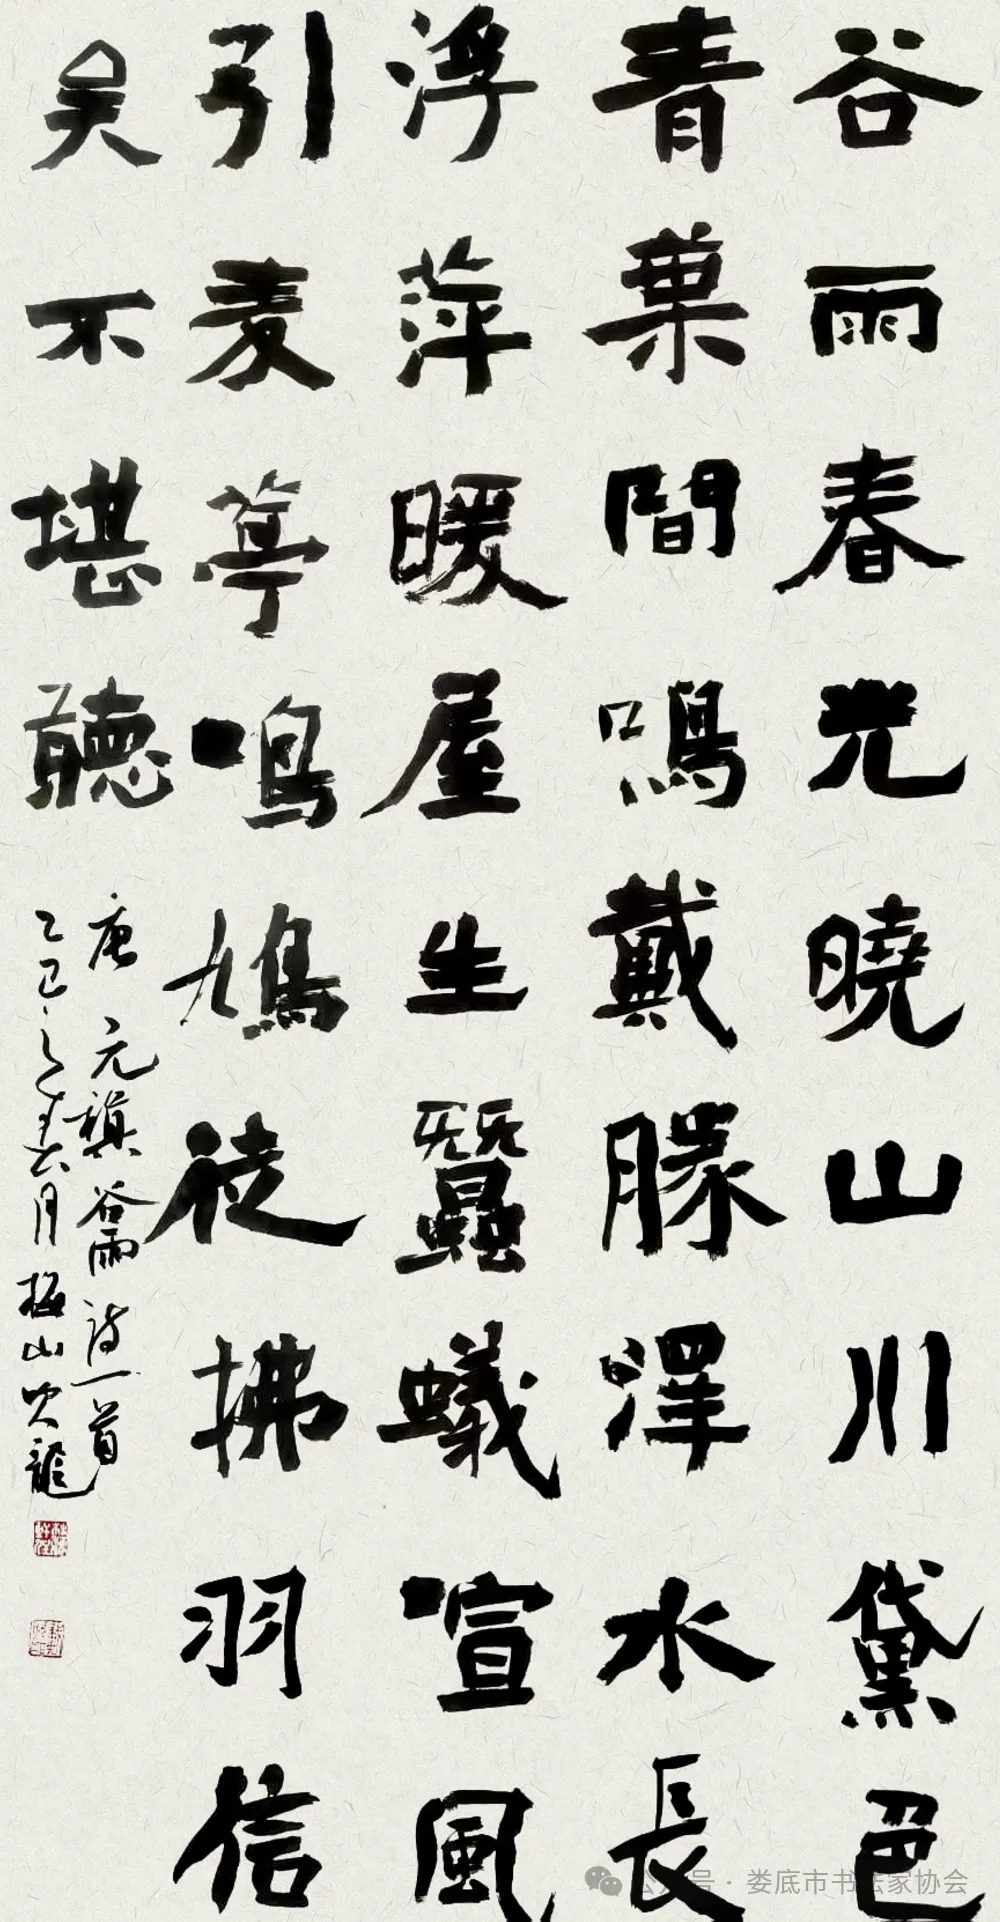 谷雨春光曉山川黛色
青葉間鳴戴勝澤水長
浮萍暖屋生蠶蟻喧風
引麥葶鳴鳩徒拂羽信
矣不堪聽
唐 元稹谷雨詩一首
乙巳之春月梅山龍
公众号 · 娄底市书法家协会